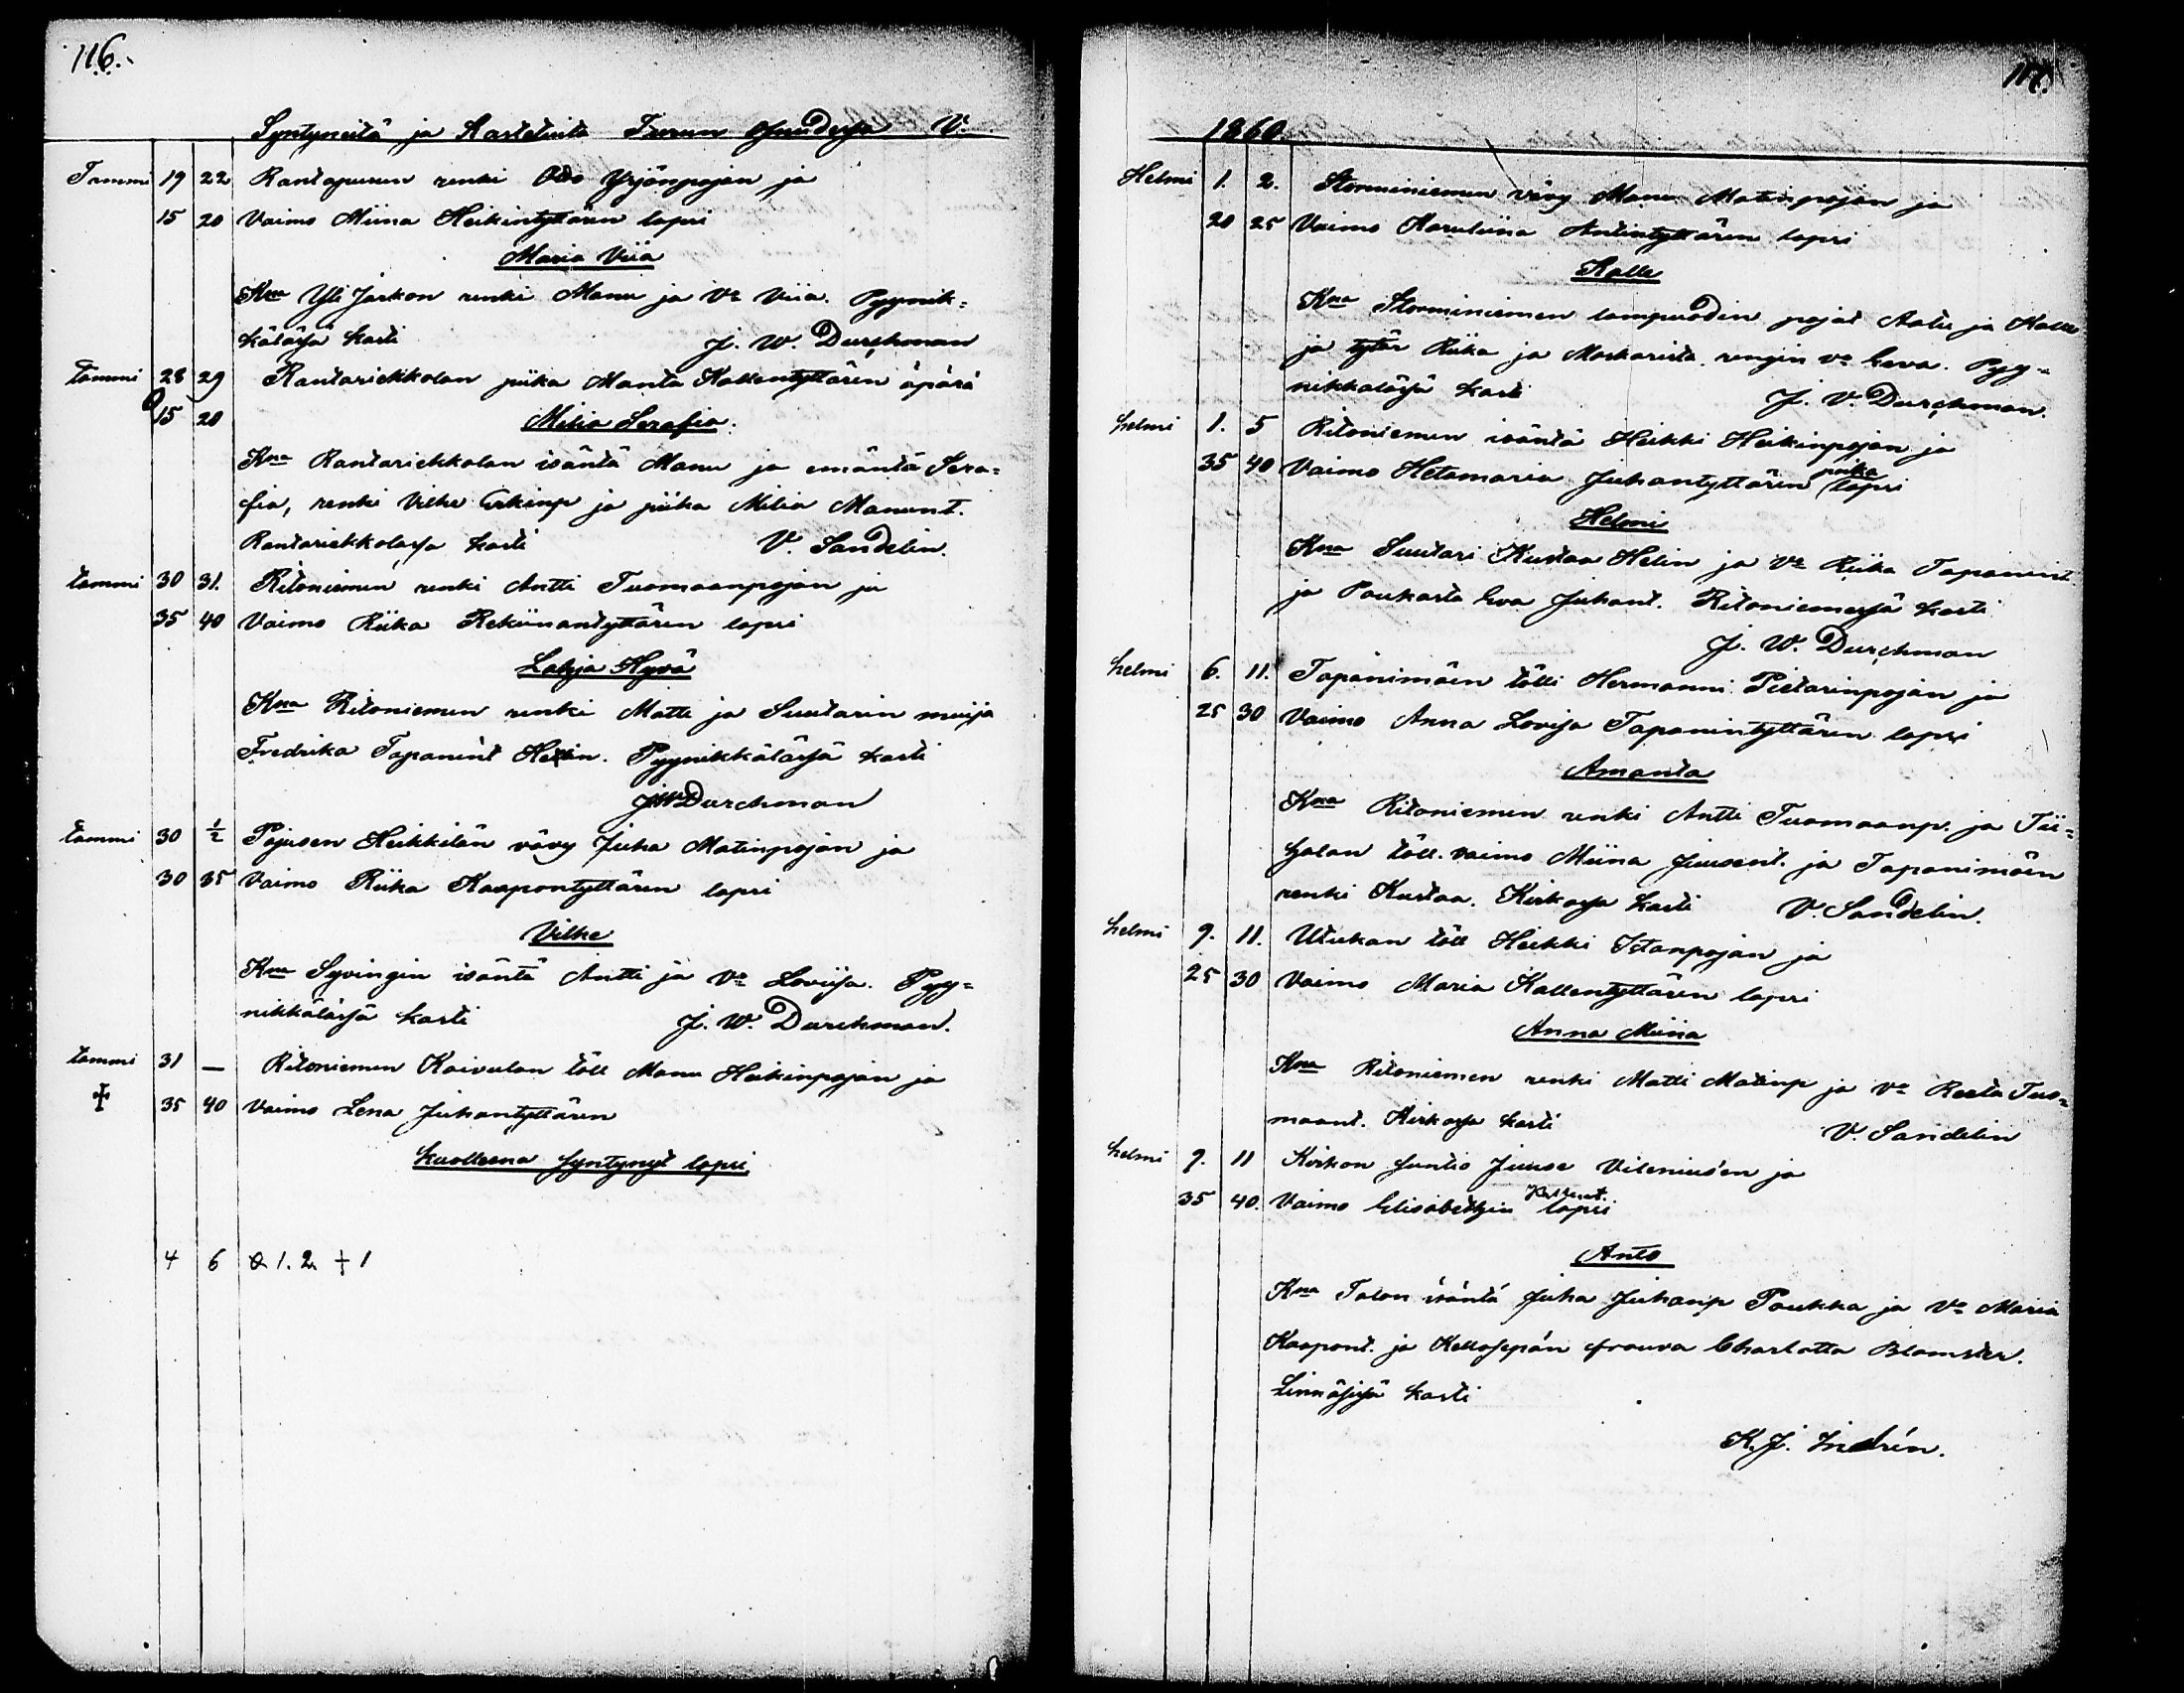 116.
Syntyneitä ja Kastetuita Turun V.
Tammi 19 22 Rantapusun renki Yrjönpojan ja
15 20 Vaimo Miina Heikintyttären lapsi
Maria Viia
Kna Yli Jaskon renki Manu ja Vo Viia. Pyynik=
kälässä kasti J. W. Durchman
tammi 28 29 Rantariekkolan piika Manta Kallentyttären äpärä
15 20 Milia Serafia.
Kna Rantariekkolan isäntä Manu ja emäntä Sera=
fia, renki Vilke Erkinp ja piika Milia Manunt.
Rantariekkolassa kasti V. Sandelin.
tammi 30 31. Ritoniemen renki Antti Tuomaanpojan ja
35 40 Vaimo Riika Rekiinantyttären lapsi
Lahja Hyvä
Kna Ritoniemen renki Matti ja Suutarin muija
Fredrika Tapanint Helin. Pyynikkälässä kasti
JWDurchman
tammi 30 1/2 Pajusen Heikkilän vävy Juha Matinpojan ja
30 35 Vaimo Riika Kaapontyttären lapsi
Vilke
Kna Syvingin isäntä Antti ja Vo Loviisa. Pyy=
nikkälässä kasti J. W. Durchman.
tammi 31 — Ritoniemen Koivulan töll Manu Heikinpojan ja
☩ 35 40 Vaimo Lena Juhantyttären
kuolleena syntynyt lapsi
4 6 1. 2. + 1
117.
1860.
Helmi 1. 2. Storminiemen vävy Manu Matinpojan ja
20 25 Vaimo Karuliina Antintyttären lapsi
Kalle
Kna Storminiemen lampuodin pojat Aatu ja Kalle
ja tytär Riika ja Maskarista rengin vo Eeva. Pyy=
nikkälässä kasti J. V. Durchman.
helmi 1. 5 Ritoniemen isäntä Heikki Heikinpojan ja
35 40 Vaimo Hetamaria Juhantyttären poika lapsi
Helmi
Kna Suutari Kustaa Helin ja Vo Riika Tapanint.
ja Paukasta Eva Juhant. Ritoniemessä kasti
J. W. Durchman
helmi 6. 11. Tapanimäen tölli Hermanni Pietarinpojan ja
25 30 Vaimo Anna Lovisa Tapanintyttären lapsi
Amanta
Kna Ritoniemen renki Antti Tuomaanp. ja Tii=
halan töll. vaimo Miina Juusent. ja Tapanimäen
renki Kustaa. Kirkossa kasti V. Sandelin.
helmi 9. 11. Utukan töll Heikki Iitanpojan ja
25 30 Vaimo Maria Kallentyttären lapsi
Anna Miina
Kna Ritoniemen renki Matti Matinp ja vo Reeta Tuo=
maant. Kirkossa kasti V. Sandelin
helmi 9. 11 Kirkon suntio Juuse Vileniuś'en ja
35 40. Vaimo Elisabethin Kallent. lapsi
Anto
Kna Talon isäntä Juha Juhanp Paukka ja Vo Maria
Kaapont. ja Kellosepän frouva Charlotta Blomster.
Linnäsissä kasti
K. J.